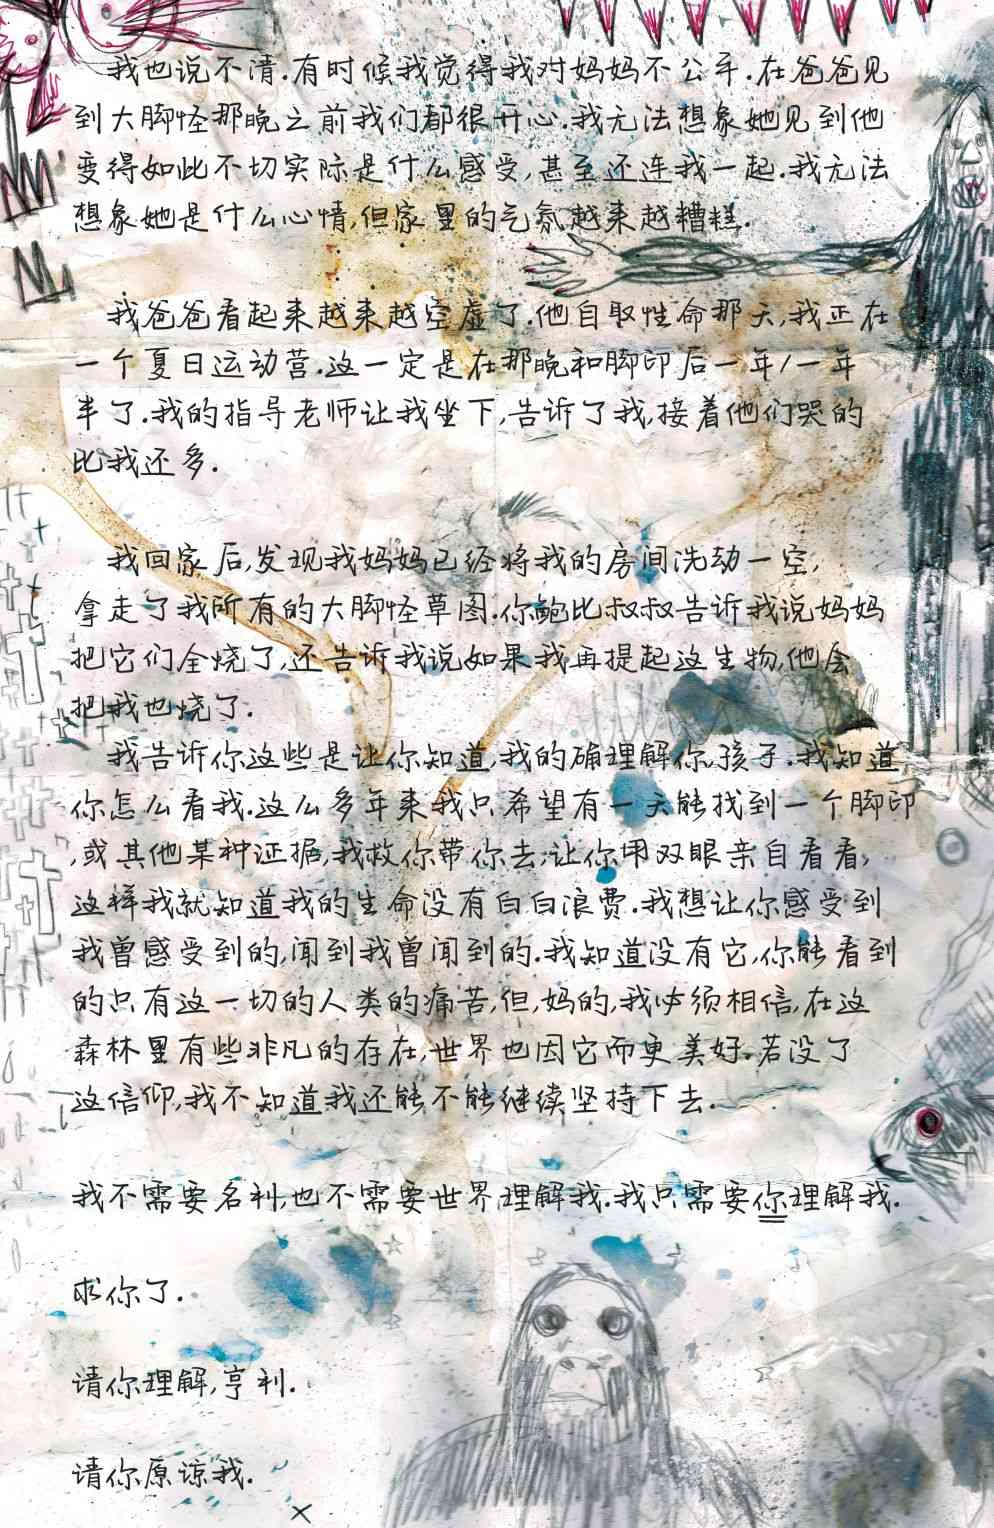 我也说不清.有时候我觉得我对妈妈不公平.在爸爸见
到大脚怪那晚之前我们都很开心.我无法想象她见到他
变得如此不切实际是什么感受,甚至还连我一起.我无法
想象她是什么心情,但家里的气氛越来越糟糕.
我爸爸看起来越来越空虚了.他自取性命那天,我正在
一个夏日运动营.这一定是在那晚和脚印后一年/一年
半了.我的指导老师让我坐下,告诉了我,接着他们哭的
比我还多.
我回家后,发现我妈妈已经将我的房间洗劫一空,
拿走了我所有的大脚怪草图.你鲍比叔叔告诉我说妈妈
把它们全烧了,还告诉我说如果我再提起这生物,他会
把我也烧了.
我告诉你这些是让你知道,我的确理解你,孩子.我知道
你怎么看我.这么多年来我只希望有一天能找到一个脚印
,或其他某种证据,我救你带你去,让你用双眼亲自看看,
这样我就知道我的生命没有白白浪费.我想让你感受到
我曾感受到的,闻到我曾闻到的.我知道没有它,你能看到
的只有这一切的人类的痛苦,但,妈的,我必须相信,在这
森林里有些非凡的存在,世界也因它而更美好.若没了
这信仰,我不知道我还能不能继续坚持下去.
我不需要名利,也不需要世界理解我.我只需要你理解我.
求你了.
请你理解,亨利.
请你原谅我.